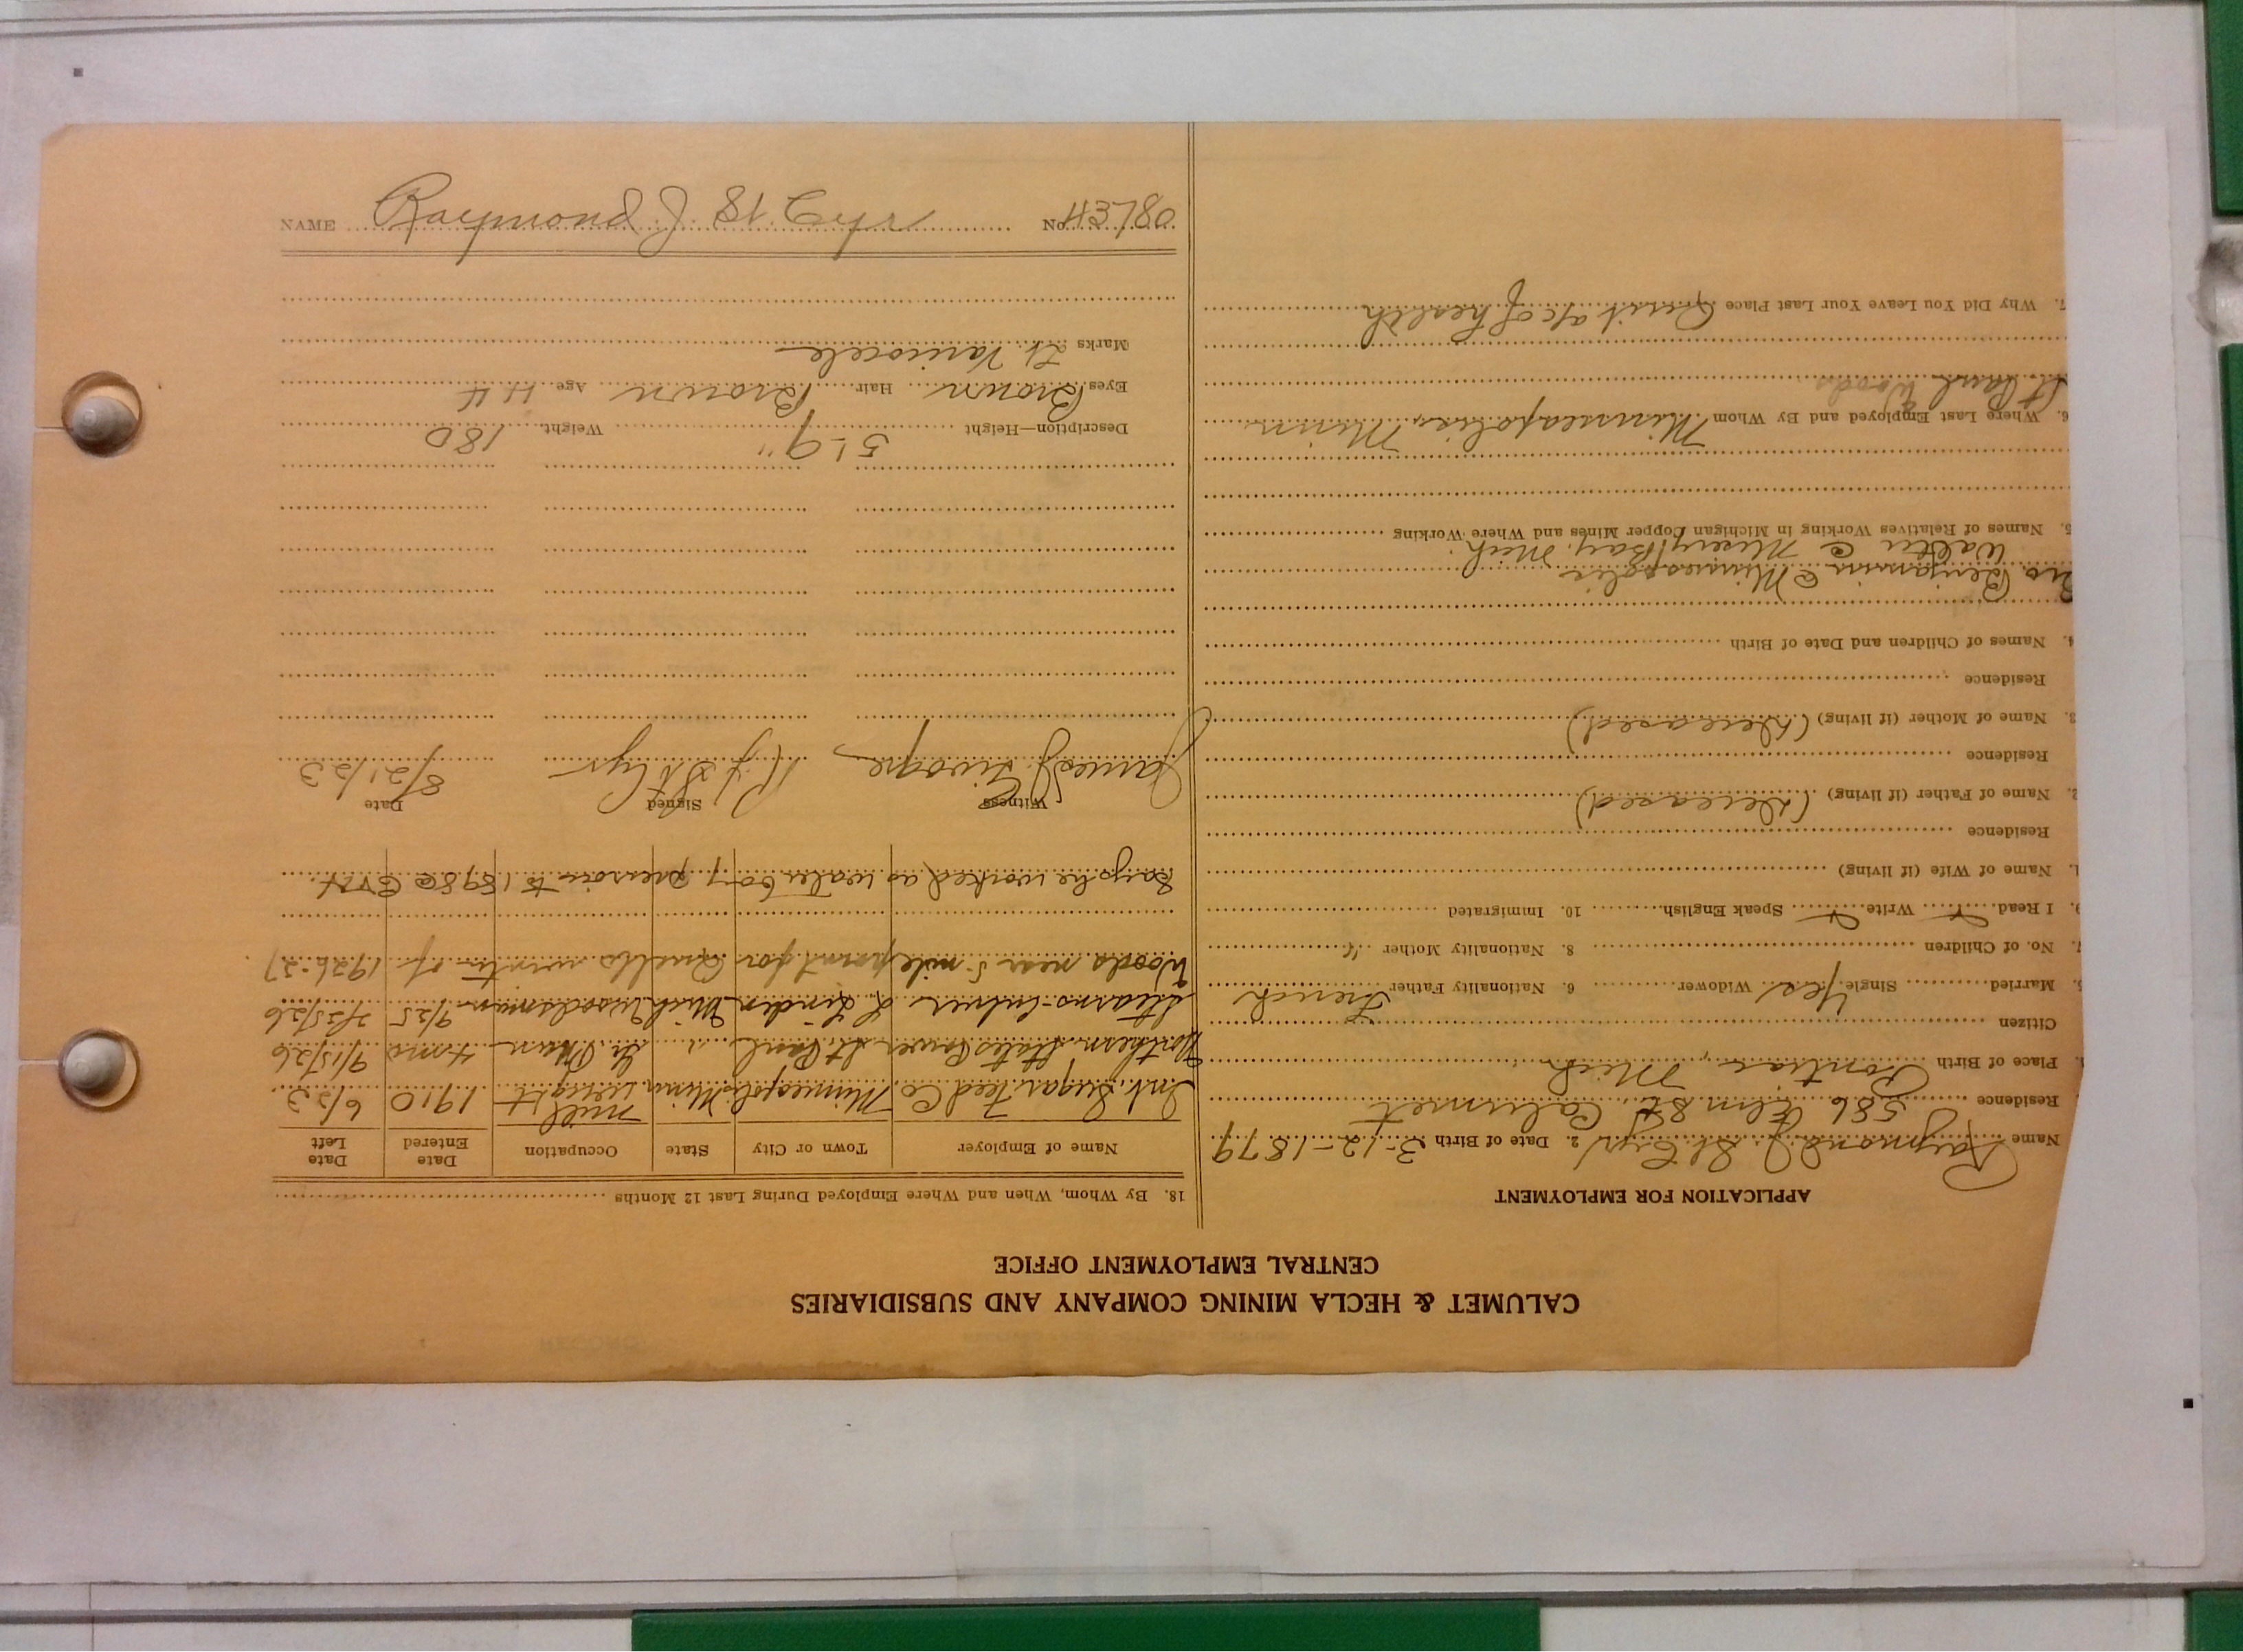 CALUMET & HECLA MINING COMPANY AND SUBSIDIARIES
CENTRAL EMPLOYMENT OFFICE
APPLICATION FOR EMPLOYMENT
Name Raymond J. St. Cyr 2. Date of Birth 3-12-1879
Residence 586 Elm St. Calumet
Place of Birth Pontiac, Mich
Citizen
5. Married Single Yes Widower 6. Nationality Father French
7. No. of Children 8. Nationality Mother "
9. I Read Write Speak English 10. Immigrated
1. Name of Wife (if living)
Residence
2. Name of Father (if living) (Deceased)
Residence
3. Name of Mother (if living) (Deceased)
Residence
4. Names of Children and Date of Birth
Bro. Benjamin @ Minneapolis
Walter @ Misery Bay, Mich.
5. Names of Relatives Working in Michigan Copper Mines and Where Working
6. Where Last Employed and By Whom Minneapolis, Minn
St Paul Woods
7. Why Did You Leave Your Last Place Quit a/c of health
18. By Whom, When and Where Employed During Last 12 Months
Name of Employer Town or City State Occupation Date Entered Date Left
Int. Sugar Feed Co. Minneapolis Minn. millwright 1910 6/23
Northern States Power St. Paul " Gr. Man 4 mo 9/15/26
Stearns-Culver L. Linden Mich Woodsman 9/25 2/25/26
Woods near 5 mile point for Quello winter of 1926-27
Says he worked as water boy prior to 1898 @
Witness Signed Date
James J. R J St Cyr 8/21/23
Description—Height 5'-9" Weight 180
Eyes Brown Hair Brown Age 44
Marks Lt. Varicocele
NAME Raymond J. St. Cyr No. 43780